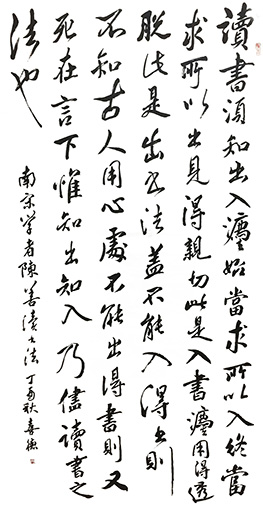 讀書須知出入灋始當求所以入終當
求所以出見得親切此是入書灋用得透
脫此是出书法蓋不能入得书則
不知古人用心處不能出得書則又
死在言下惟知出知入乃儘讀書之
法也
南宋学者陳善讀书法丁酉秋喜德